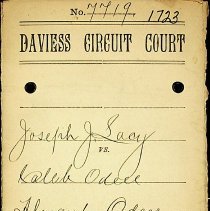 No. 7719 1723
DAVIESS CIRCUIT COURT
Joseph J. Lacy
vs.
Caleb Odell
Odell